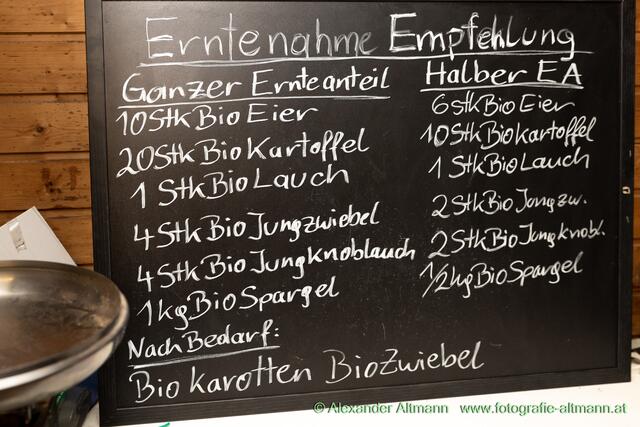 Erntenahme Empfehlung
Ganzer Ernteanteil
10 Stk Bio Eier
20 Stk Bio Kartoffel
1 Stk Bio Lauch
4 Stk Bio Jungzwiebel
4 Stk Bio Jungknoblauch
1 kg Bio Spargel
Nach Bedarf:
Bio Karotten Bio Zwiebel
Halber EA
6 Stk Bio Eier
10 Stk Bio Kartoffel
1 Stk Bio Lauch
2 Stk Bio Jungzw.
2 Stk Bio Jungknobl.
1/2 kg Bio Spargel
© Alexander Altmann www.fotografie-altmann.at